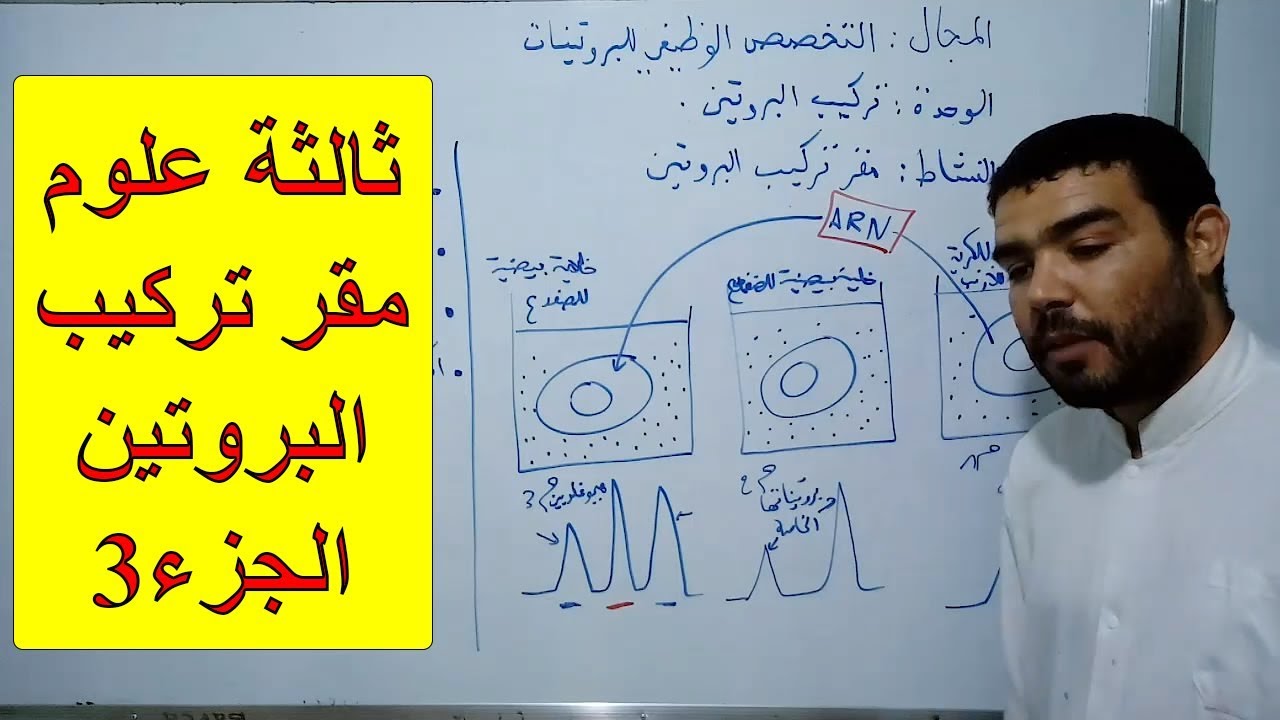 المجال : التخصص الوظيفي للبروتينات
الوحدة : تركيب البروتين .
النشاط : مقر تركيب البروتين
ثالثة علوم
مقر تركيب
البروتين
الجزء3
ARN
خلية بيضية
للضفدع
خلية بيضية للضفدع
هيموغلوبين م 3
م 2
بروتيناتها
الخاصة